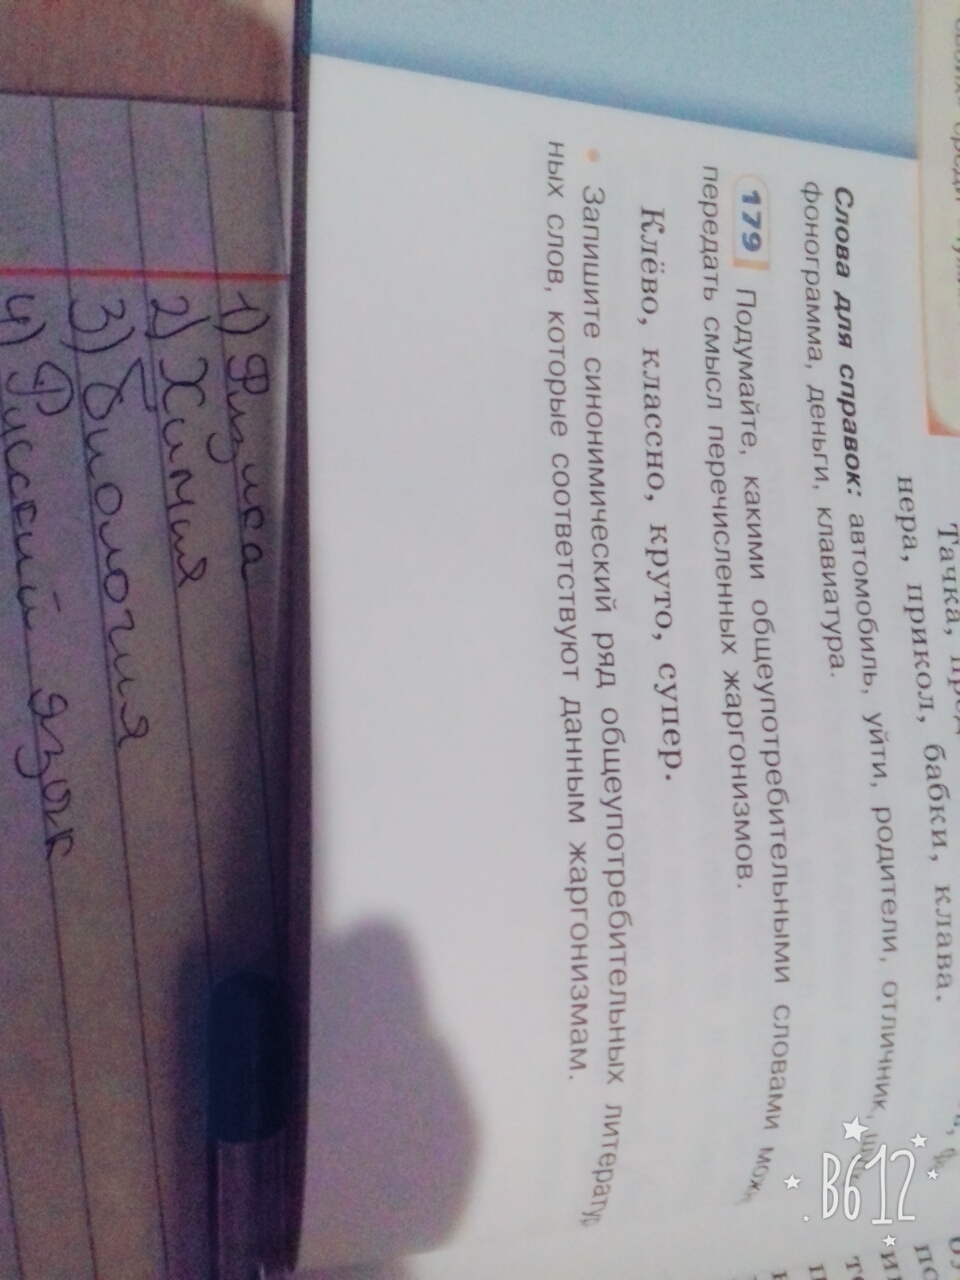 Тачка,
нера, прикол, бабки, клава.
Слова для справок: автомобиль, уйти, родители, отличник,
фонограмма, деньги, клавиатура.
179 Подумайте, какими общеупотребительными словами
передать смысл перечисленных жаргонизмов.
Клёво, классно, круто, супер.
• Запишите синонимический ряд общеупотребительных литератур
ных слов, которые соответствуют данным жаргонизмам.
1) Физика
2) Химия
3) Биология
4) Русский язык
B612